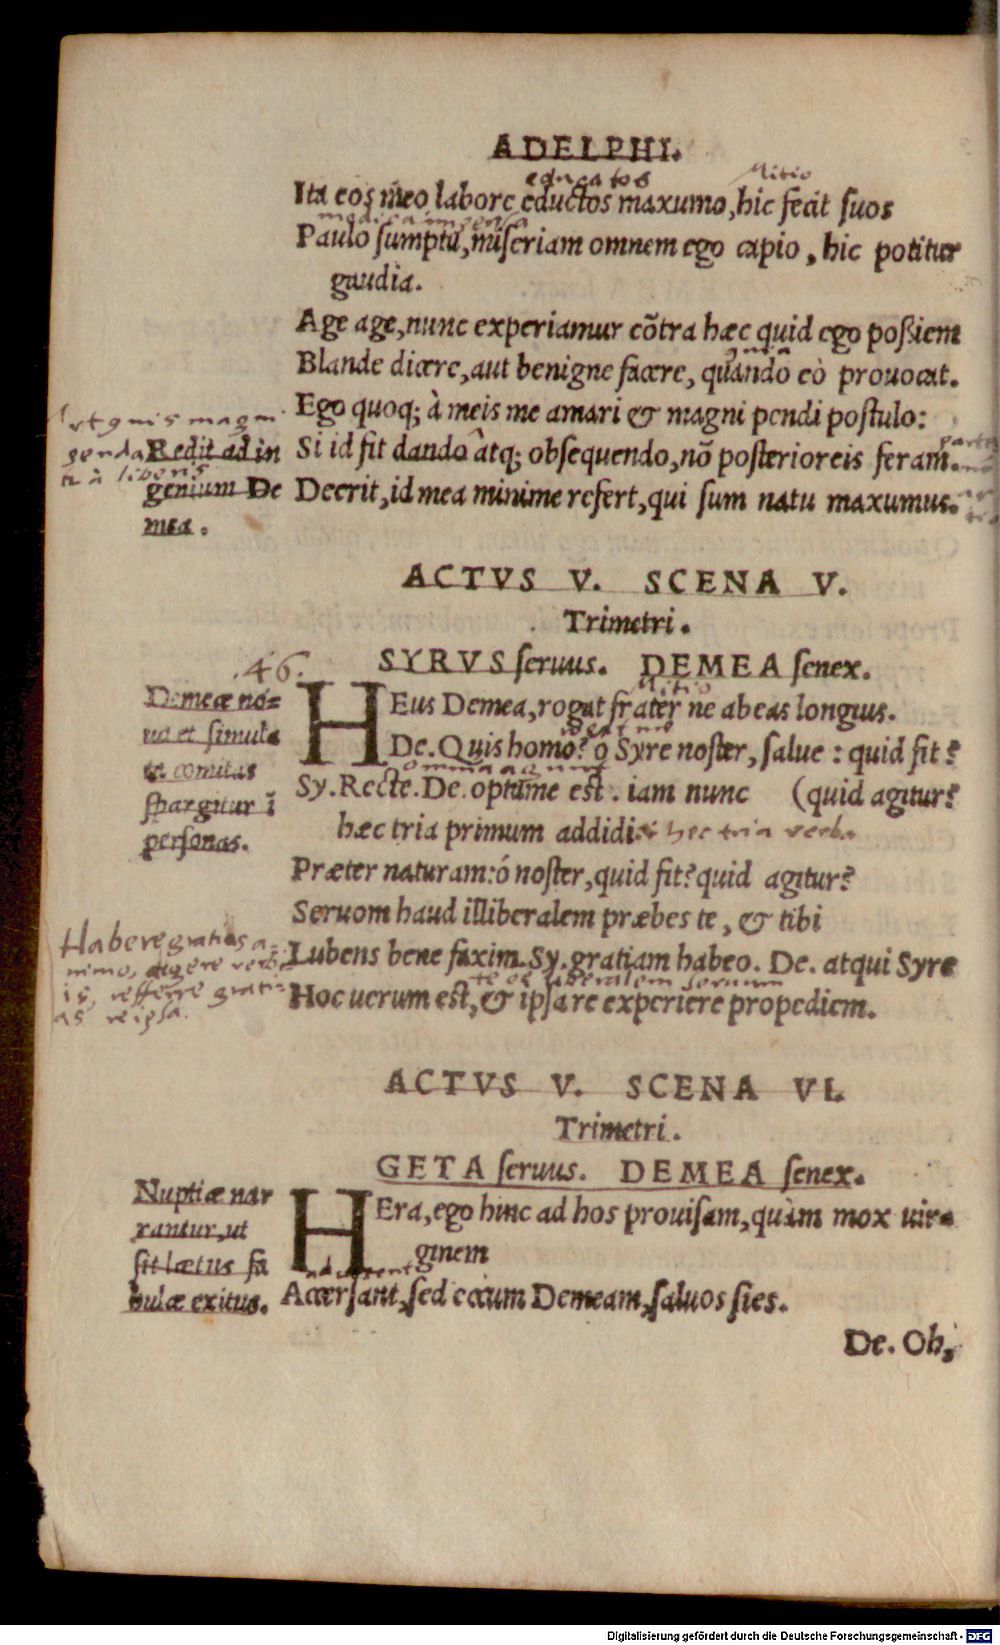 ADELPHI.
educatos Mitio
Ita eos meo labore eductos maxumo, hic fecit suos
modica impensa
Paulo sumptu, miseriam omnem ego capio, hic potitur
gaudia.
Age age, nunc experiamur cõtra hæc quid ego poßiem
Blande dicere, aut benigne facere, quando eò prouocat.
Ego quoq; à meis me amari & magni pendi postulo:
Si id fit dando atq; obsequendo, nõ posterioreis feram.
partes
Deerit, id mea minime refert, qui sum natu maxumus.
magni
Redit ad in
à liberis
genium De
mea.
ACTVS V. SCENA V.
Trimetri.
SYRVS seruus. DEMEA senex.
.46.
Demeæ no=
ua et simula
ta comitas
spargitur ĩ
personas.
Mitio
HEus Demea, rogat frater ne abeas longius.
De. Quis homo? ô Syre noster, salue: quid fit?
omnia
Sy. Recte. De. optume est. iam nunc (quid agitur?
hæc tria primum addidi hec tria verba
Præter naturam: ó noster, quid fit? quid agitur?
Seruom haud illiberalem præbes te, & tibi
Lubens bene faxim. Sy. gratiam habeo. De. atqui Syre
te liberalem seruum
Hoc uerum est, & ipsa re experiere propediem.
Habere gratias a-
nimo, agere verb-
is, referre grati-
as reipsa.
ACTVS V. SCENA VI.
Trimetri.
GETA seruus. DEMEA senex.
Nuptiæ nar
rantur, ut
sit lætus fa
bulæ exitus.
HEra, ego hinc ad hos prouisam, quàm mox uir=
ginem
Accersant, sed eccum Demeam, saluos sies.
De. Oh,
Digitalisierung gefördert durch die Deutsche Forschungsgemeinschaft - DFG